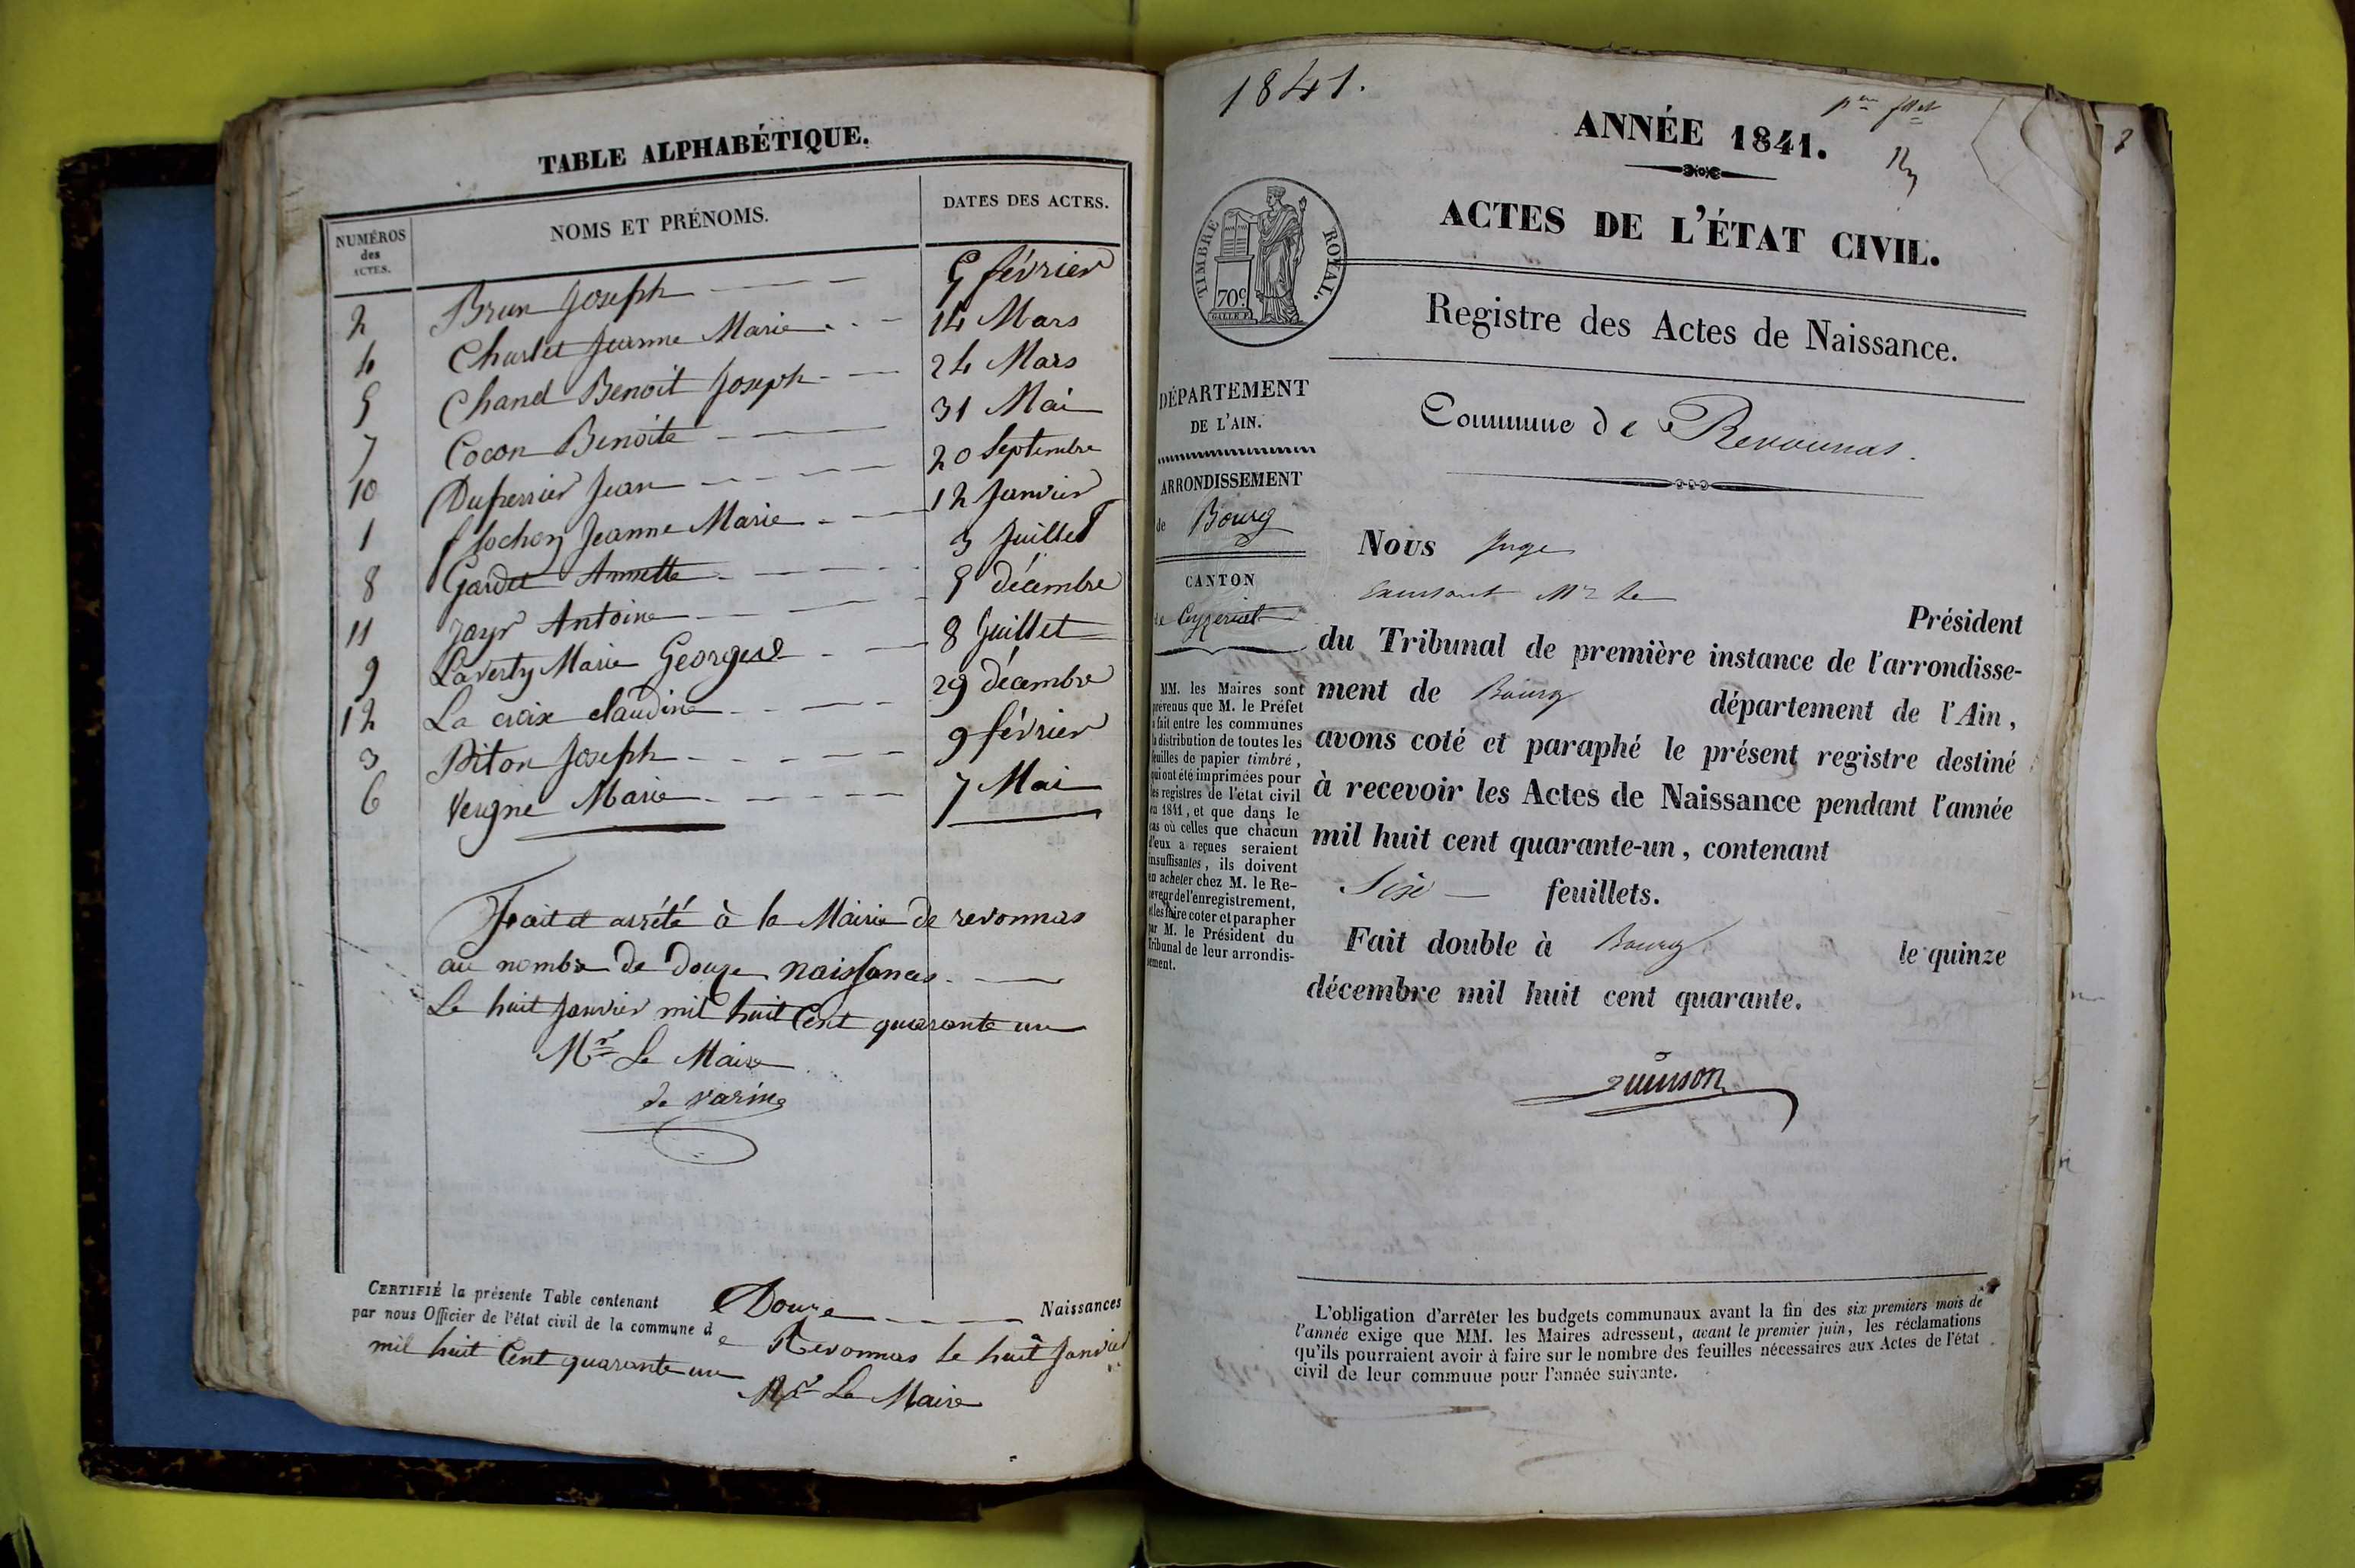 TABLE ALPHABÉTIQUE.
NUMÉROS des ACTES.
NOMS ET PRÉNOMS.
DATES DES ACTES.
2 Brun Joseph 5 février
4 Charlet Jeanne Marie 14 Mars
5 Chanel Benoit Joseph 24 Mars
7 Cocon Benoite 31 Mai
10 Duperrier Jean 20 Septembre
1 flochon Jeanne Marie 12 Janvier
8 Gardet Annette 3 Juillet
11 Jayr Antoine 5 décembre
9 Laverty Marie Georgese 8 Juillet
12 La croix claudine 29 décembre
3 Piton Joseph 9 février
6 Vergne Marie 7 Mai
Fait et arrêté à la Mairie de revonnas
au nombre de douze naissances
Le huit Janvier mil huit Cent quarante un
Mr Le Maire
de varine
CERTIFIÉ la présente Table contenant Douze Naissances
par nous Officier de l'état civil de la commune de Revonnas le huit Janvier
mil huit Cent quarante un
Mr Le Maire
1841.
ANNÉE 1841.
ACTES DE L'ÉTAT CIVIL.
TIMBRE ROYAL.
70c
Registre des Actes de Naissance.
DÉPARTEMENT
DE L'AIN.
ARRONDISSEMENT
de Bourg
CANTON
de Ceyzeriat
MM. les Maires sont
prévenus que M. le Préfet
a fait entre les communes
la distribution de toutes les
feuilles de papier timbré,
qui ont été imprimées pour
les registres de l'état civil
en 1841, et que dans le
cas où celles que chacun
d'eux a reçues seraient
insuffisantes, ils doivent
en acheter chez M. le Re-
ceveur de l'enregistrement,
et les faire coter et parapher
par M. le Président du
Tribunal de leur arrondis-
sement.
Commune de Revounas.
Nous Juge
Mr le
Président
du Tribunal de première instance de l'arrondisse-
ment de Bourg département de l'Ain,
avons coté et paraphé le présent registre destiné
à recevoir les Actes de Naissance pendant l'année
mil huit cent quarante-un, contenant
Six feuillets.
Fait double à Bourg le quinze
décembre mil huit cent quarante.
L'obligation d'arrêter les budgets communaux avant la fin des six premiers mois de
l'année exige que MM. les Maires adressent, avant le premier juin, les réclamations
qu'ils pourraient avoir à faire sur le nombre des feuilles nécessaires aux Actes de l'état
civil de leur commune pour l'année suivante.